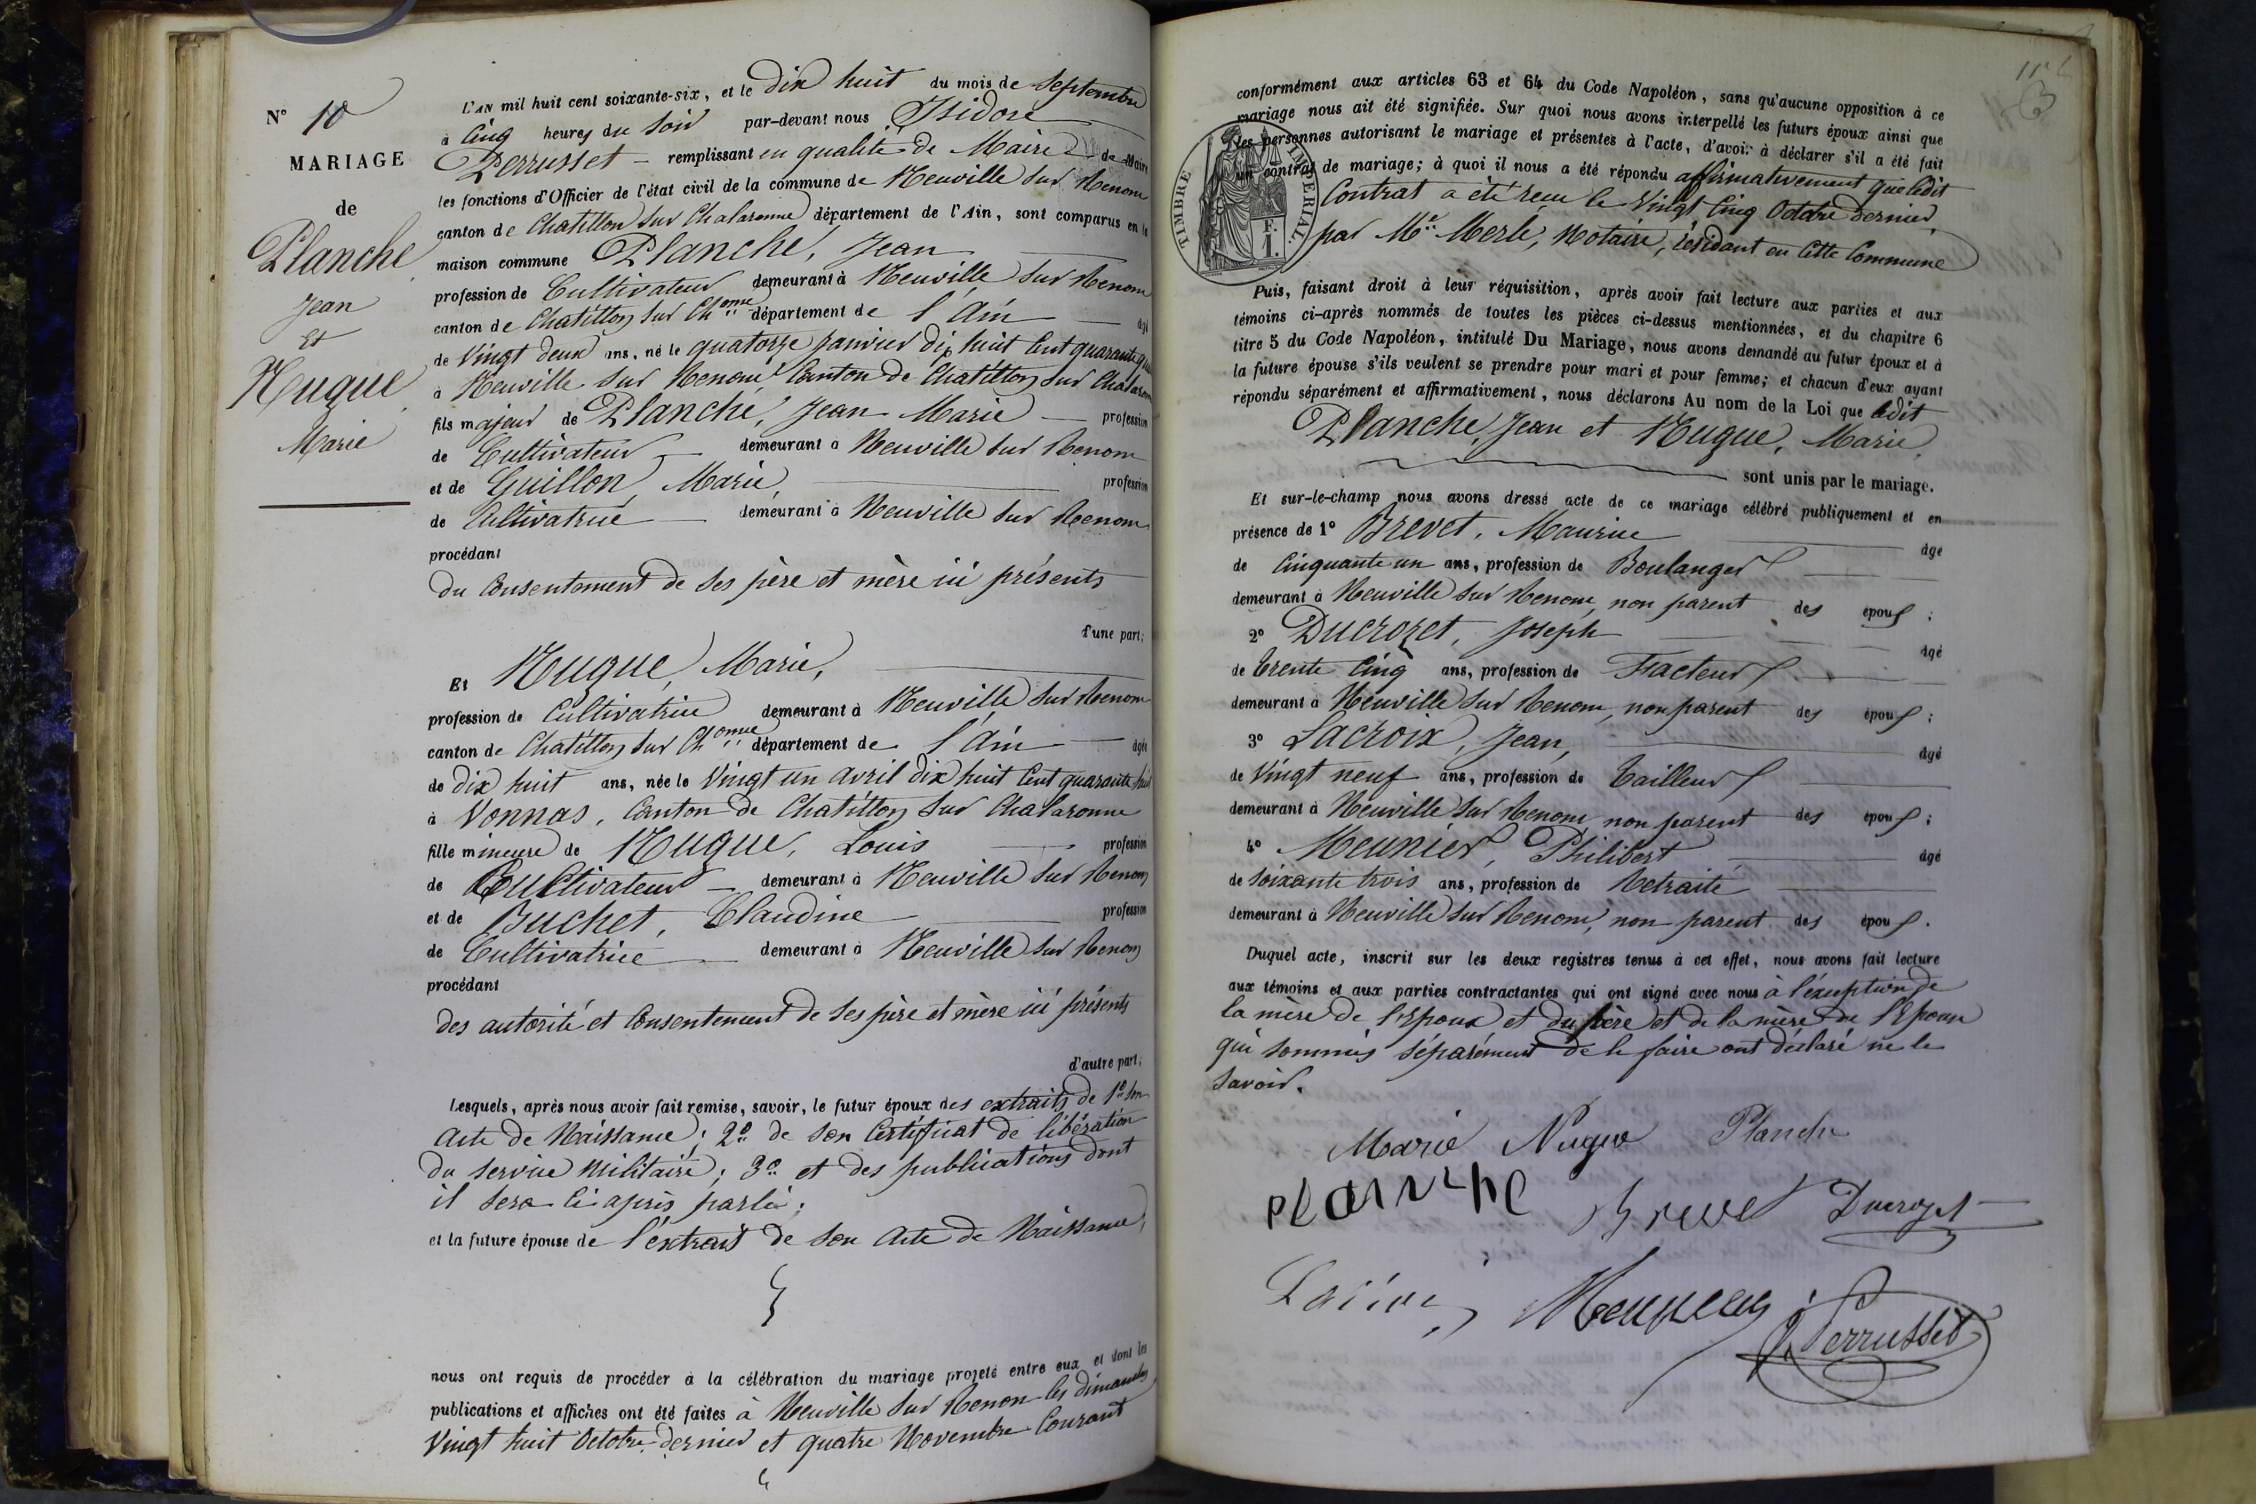 N° 10
MARIAGE
de
Planche
Jean
Et
Nugue
Marie
L'AN mil huit cent soixante-six, et le dix huit du mois de Septembre
à Cinq heures du Soir par-devant nous Isidore
Perrusset remplissant en qualité de Maire de Maire
les fonctions d'Officier de l'état civil de la commune de Neuville sur Renom
canton de Chatillon sur Chalaronne département de l'Ain, sont comparus en la
maison commune Planche, Jean
profession de Cultivateur demeurant à Neuville sur Renom
canton de Chatillon sur Ch onne département de l'Ain âgé
de Vingt deux ans, né le quatorze janvier dix huit Cent quarante
à Neuville sur Renom Canton de Chatillon sur Chalaronne
fils majeur de Planche, Jean Marie profession
de Cultivateur demeurant à Neuville sur Renom
et de Guillon, Marie, profession
de Cultivatrice demeurant à Neuville sur Renom
procédant
du Consentement de ses père et mère ici présents
d'une part;
Et Nugue, Marie,
profession de Cultivatrice demeurant à Neuville sur Renom
canton de Chatillon sur Ch onne département de l'Ain âgée
de dix huit ans, née le Vingt un avril dix huit Cent quarante huit
à Vonnas, Canton de Chatillon sur Chalaronne
fille mineure de Nugue, Louis profession
de Cultivateur demeurant à Neuville sur Renom
et de Buchet, Claudine profession
de Cultivatrice demeurant à Neuville sur Renom
procédant
des autorité et Consentement de ses père et mère ici présents
d'autre part;
Lesquels, après nous avoir fait remise, savoir, le futur époux des extraits de 1° son
Acte de Naissance; 2° de son Certificat de libération
du service Militaire; 3° et des publications dont
il sera Ci après parlé;
et la future épouse de l'extrait de son Acte de Naissance,
nous ont requis de procéder à la célébration du mariage projeté entre eux et dont les
publications et affiches ont été faites à Neuville sur Renom les dimanches
Vingt huit Octobre dernier et quatre Novembre Courant
TIMBRE IMPÉRIAL.
F.
1.
conformément aux articles 63 et 64 du Code Napoléon, sans qu'aucune opposition à ce
mariage nous ait été signifiée. Sur quoi nous avons interpellé les futurs époux ainsi que
les personnes autorisant le mariage et présentes à l'acte, d'avoir à déclarer s'il a été fait
un contrat de mariage; à quoi il nous a été répondu affirmativement que ledit
Contrat a été reçu le Vingt Cinq Octobre dernier,
par Me Merle, Notaire, résidant en Cette Commune
Puis, faisant droit à leur réquisition, après avoir fait lecture aux parties et aux
témoins ci-après nommés de toutes les pièces ci-dessus mentionnées, et du chapitre 6
titre 5 du Code Napoléon, intitulé Du Mariage, nous avons demandé au futur époux et à
la future épouse s'ils veulent se prendre pour mari et pour femme; et chacun d'eux ayant
répondu séparément et affirmativement, nous déclarons Au nom de la Loi que ledit
Planche, Jean et Nugue, Marie,
sont unis par le mariage.
Et sur-le-champ nous avons dressé acte de ce mariage célébré publiquement et en
présence de 1° Brevet, Maurice âgé
de Cinquante un ans, profession de Boulanger
demeurant à Neuville sur Renom, non parent des époux;
2° Ducrozet, Joseph âgé
de trente Cinq ans, profession de Facteur
demeurant à Neuville sur Renom, non parent des époux;
3° Lacroix, Jean, âgé
de Vingt neuf ans, profession de Tailleur
demeurant à Neuville sur Renom non parent des époux;
4° Meunier, Philibert âgé
de soixante trois ans, profession de Retraité
demeurant à Neuville sur Renom, non parent des époux.
Duquel acte, inscrit sur les deux registres tenus à cet effet, nous avons fait lecture
aux témoins et aux parties contractantes qui ont signé avec nous à l'exception de
la mère de l'Epoux et du père et de la mère de l'Epouse
qui sommés séparément de le faire ont déclaré ne le
savoir.
Marie Nugue Planche
Planche Brevet Ducrozet
Perrusset